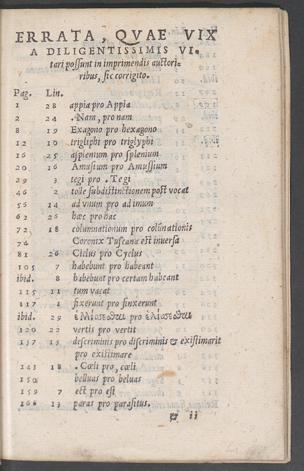 ERRATA, QVAE VIX
A DILIGENTISSIMIS VI-
tari possunt in imprimendis auctori-
ribus, sic corrigito.
Pag. Lin.
1 28 appia pro Appia
2 24 . Nam, pro nam
8 19 Exagono pro hexagono
12 10 trigliphi pro triglyphi
16 25 asplenium pro splenium
20 16 Amusium pro Amussium
29 3 tegi pro . Tegi
46 2 tolle subdistinctionem post vocat
56 14 ad vnum pro ad imum
62 26 hæc pro hac
72 18 columnationum pro colūnationis
74 Coronix Tuscana est inuersa
81 26 Ciclus pro Cyclus
105 7 habebunt pro habeant
ibid. 8 habebunt pro certam habeant
115 11 tum vacat
117 1 fixerunt pro finxerunt
ibid. 29
120 22 vertis pro vertit
137 13 descriminis pro discriminis & existimarit
pro existimare
143 18 . Cœli pro, cœli
150 belluas pro beluas
159 7 ect pro est
166 13 paras pro parasitus.
& ii